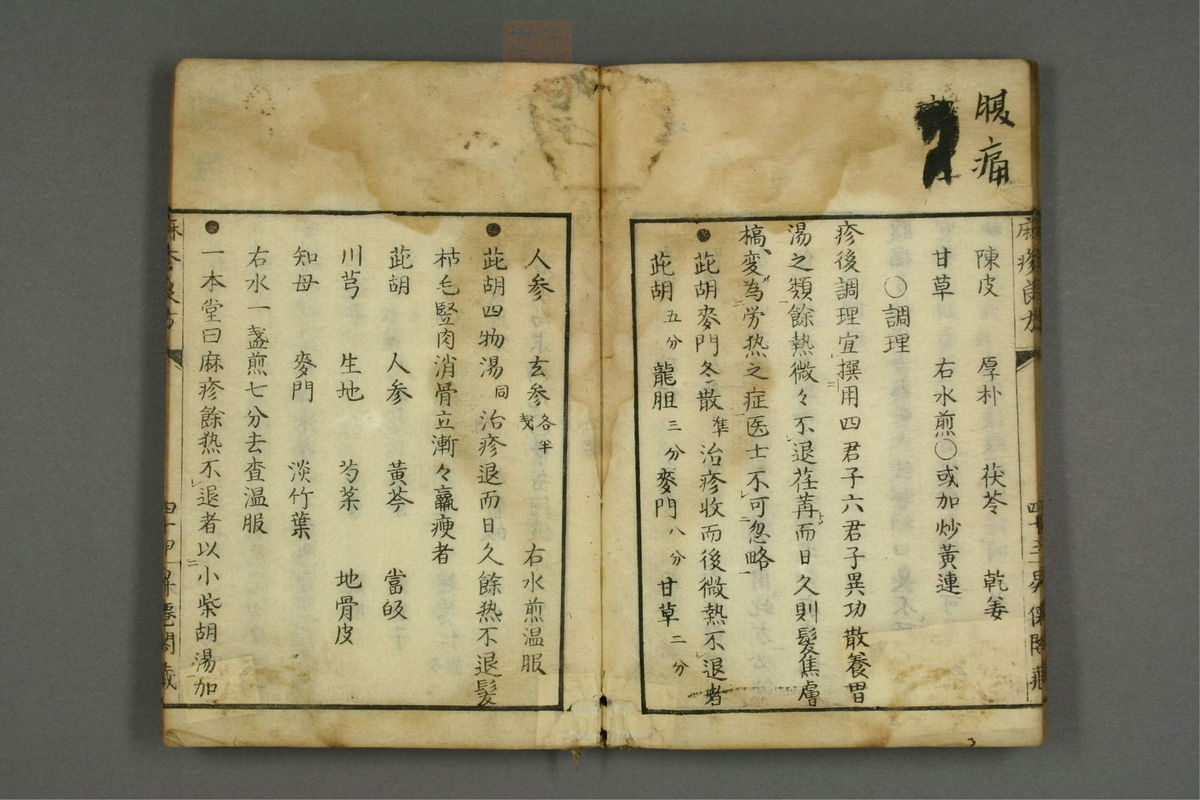 腹痛
陳皮 厚朴 茯苓 乾姜
甘草 右水煎○或加炒黃連
○調理
疹後調理宜撰用四君子六君子異功散養胃
湯之類餘熱微々不退荏苒而日久則髮焦膚
槁変為労热之症医士不可忽略
●茈胡麥門冬散 準 治疹收而後微熱不退者
茈胡 五分 龍胆 三分 麥門 八分 甘草 二分
人参 玄参 各半 右水煎温服
●茈胡四物湯 同 治疹退而日久餘热不退髮
枯毛竪肉消骨立漸々羸痩者
茈胡 人参 黃芩 當皈
川芎 生地 芍薬 地骨皮
知母 麥門 淡竹葉
右水一盞煎七分去査温服
●一本堂曰麻疹餘热不退者以小柴胡湯加